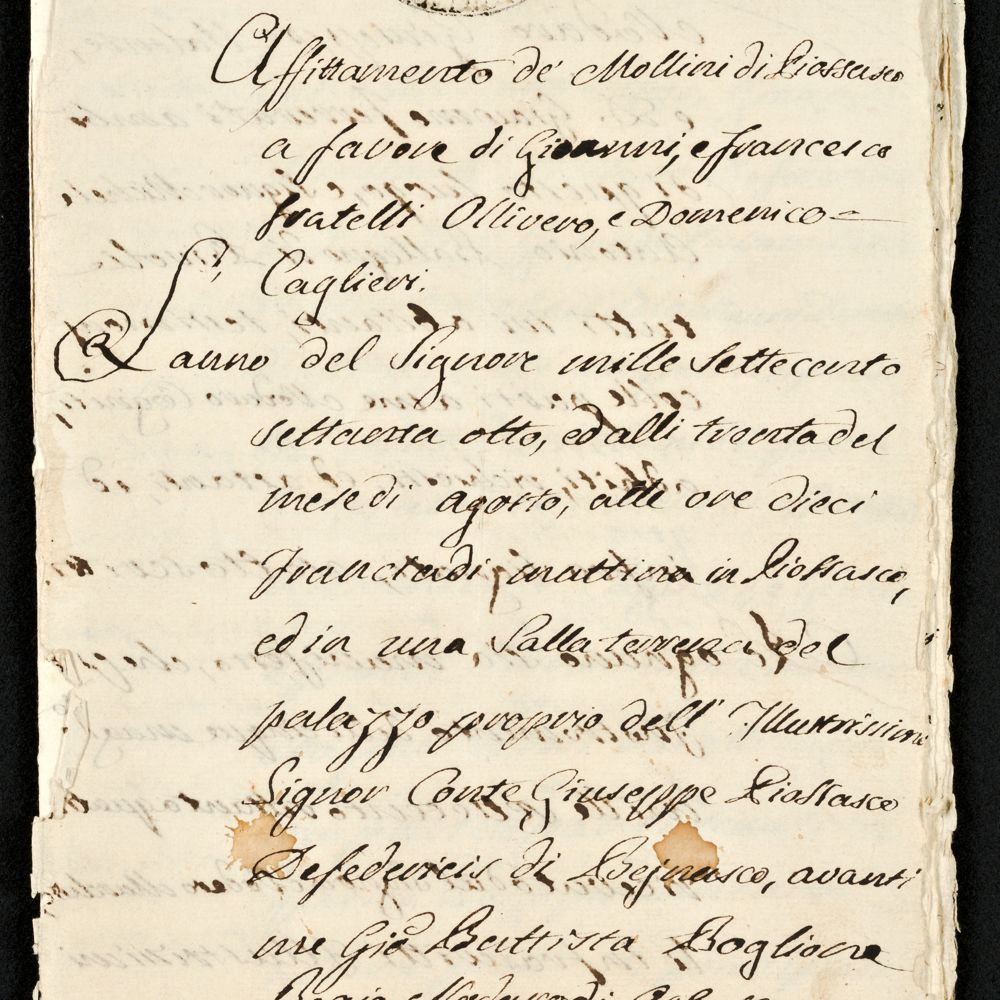 Affittamento de' Mollini di Piossasco
a favore di Gioanni, e francesco
fratelli Ollivero, e Domenico =
Caglieri.
L'anno del Signore mille settecento
settanta otto, ed alli trenta del
mese di agosto, alle ore dieci
Francia di mattina in Piossasco,
ed in una Salla terrena del
palazzo proprio dell' Illustrissimo
Signor Conte Giuseppe Piossasco
Defedericis di Bejnasco, avanti
me Gio Battista Boglione